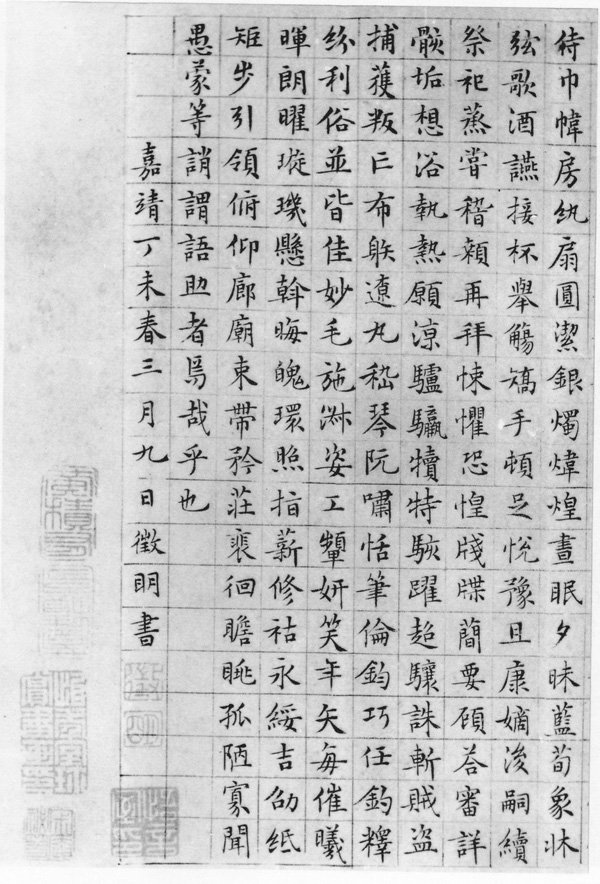 侍巾幃房紈扇圓潔銀燭煒煌晝眠夕昧藍荀象牀
弦歌酒讌接杯舉觴矯手頓足悅豫且康嫡後嗣續
祭祀蒸甞稽顙再拜悚懼恐惶牋牒簡要頋荅審詳
骸垢想浴執熱願涼驢驘犢特駭躍超驤誅斬賊盜
捕獲叛亡布躲遼丸嵇琴阮嘯恬筆倫鈞巧任釣釋
紛利俗並皆佳妙毛施淑姿工顰妍笑年矢每催曦
暉朗曜璇璣懸斡晦魄環照指薪修祜永綏吉劭紙
矩步引領俯仰廊廟束帶矜莊裴徊瞻眺孤陋寡聞
愚蒙等誚謂語助者焉哉乎也
嘉靖丁未春三月九日徵明書
徵明